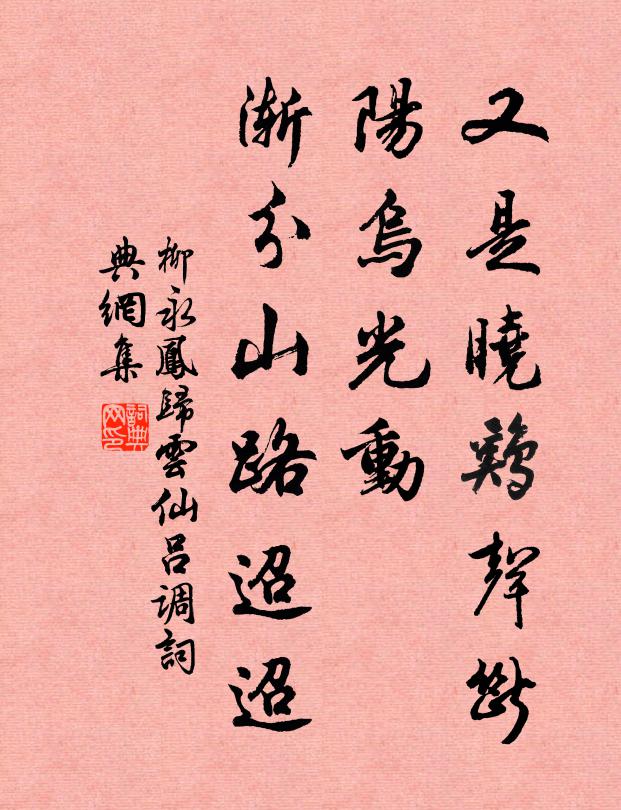 又是曉鷄聲斷
陽烏光動
漸分山路迢迢
柳永鳳歸雲仙呂调詞
典網集
詞典
网印